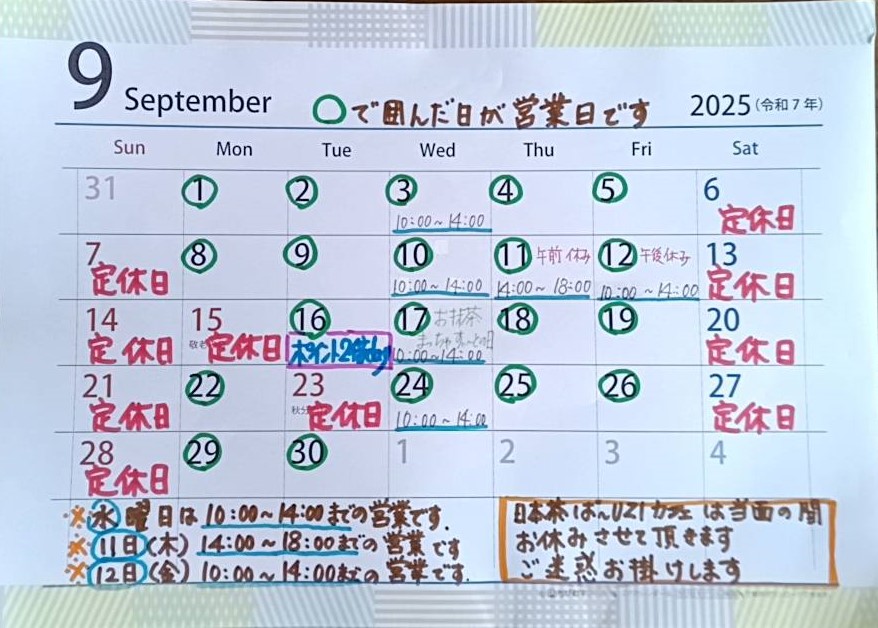 9 September ○で囲んだ日が営業日です 2025 (令和7年)
Sun Mon Tue Wed Thu Fri Sat
31 1 2 3 4 5 6
10:00~14:00 定休日
7 8 9 10 11 午前休み 12 午後休み 13
定休日 10:00~14:00 14:00~18:00 10:00~14:00 定休日
14 15 16 17 お抹茶 18 19 20
定休日 敬老 定休日 ポイント2倍day 10:00~14:00 定休日
21 22 23 24 25 26 27
定休日 秋分 定休日 10:00~14:00 定休日
28 29 30 1 2 3 4
定休日
※水曜日は10:00~14:00までの営業です.
※11日(木) 14:00~18:00までの営業です
※12日(金) 10:00~14:00までの営業です.
日本茶ばんUZIカフェは当面の間
お休みさせて頂きます
ご迷惑お掛けします